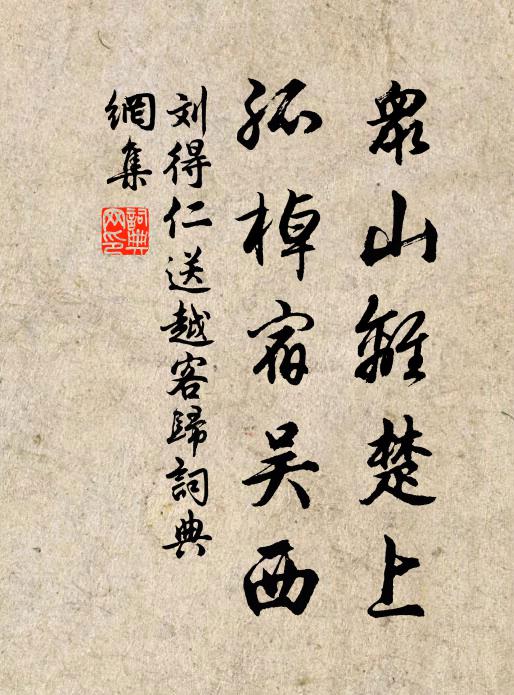 衆山離楚上
孤棹宿吴西
刘得仁送越客歸詞典
網集
詞典
网印